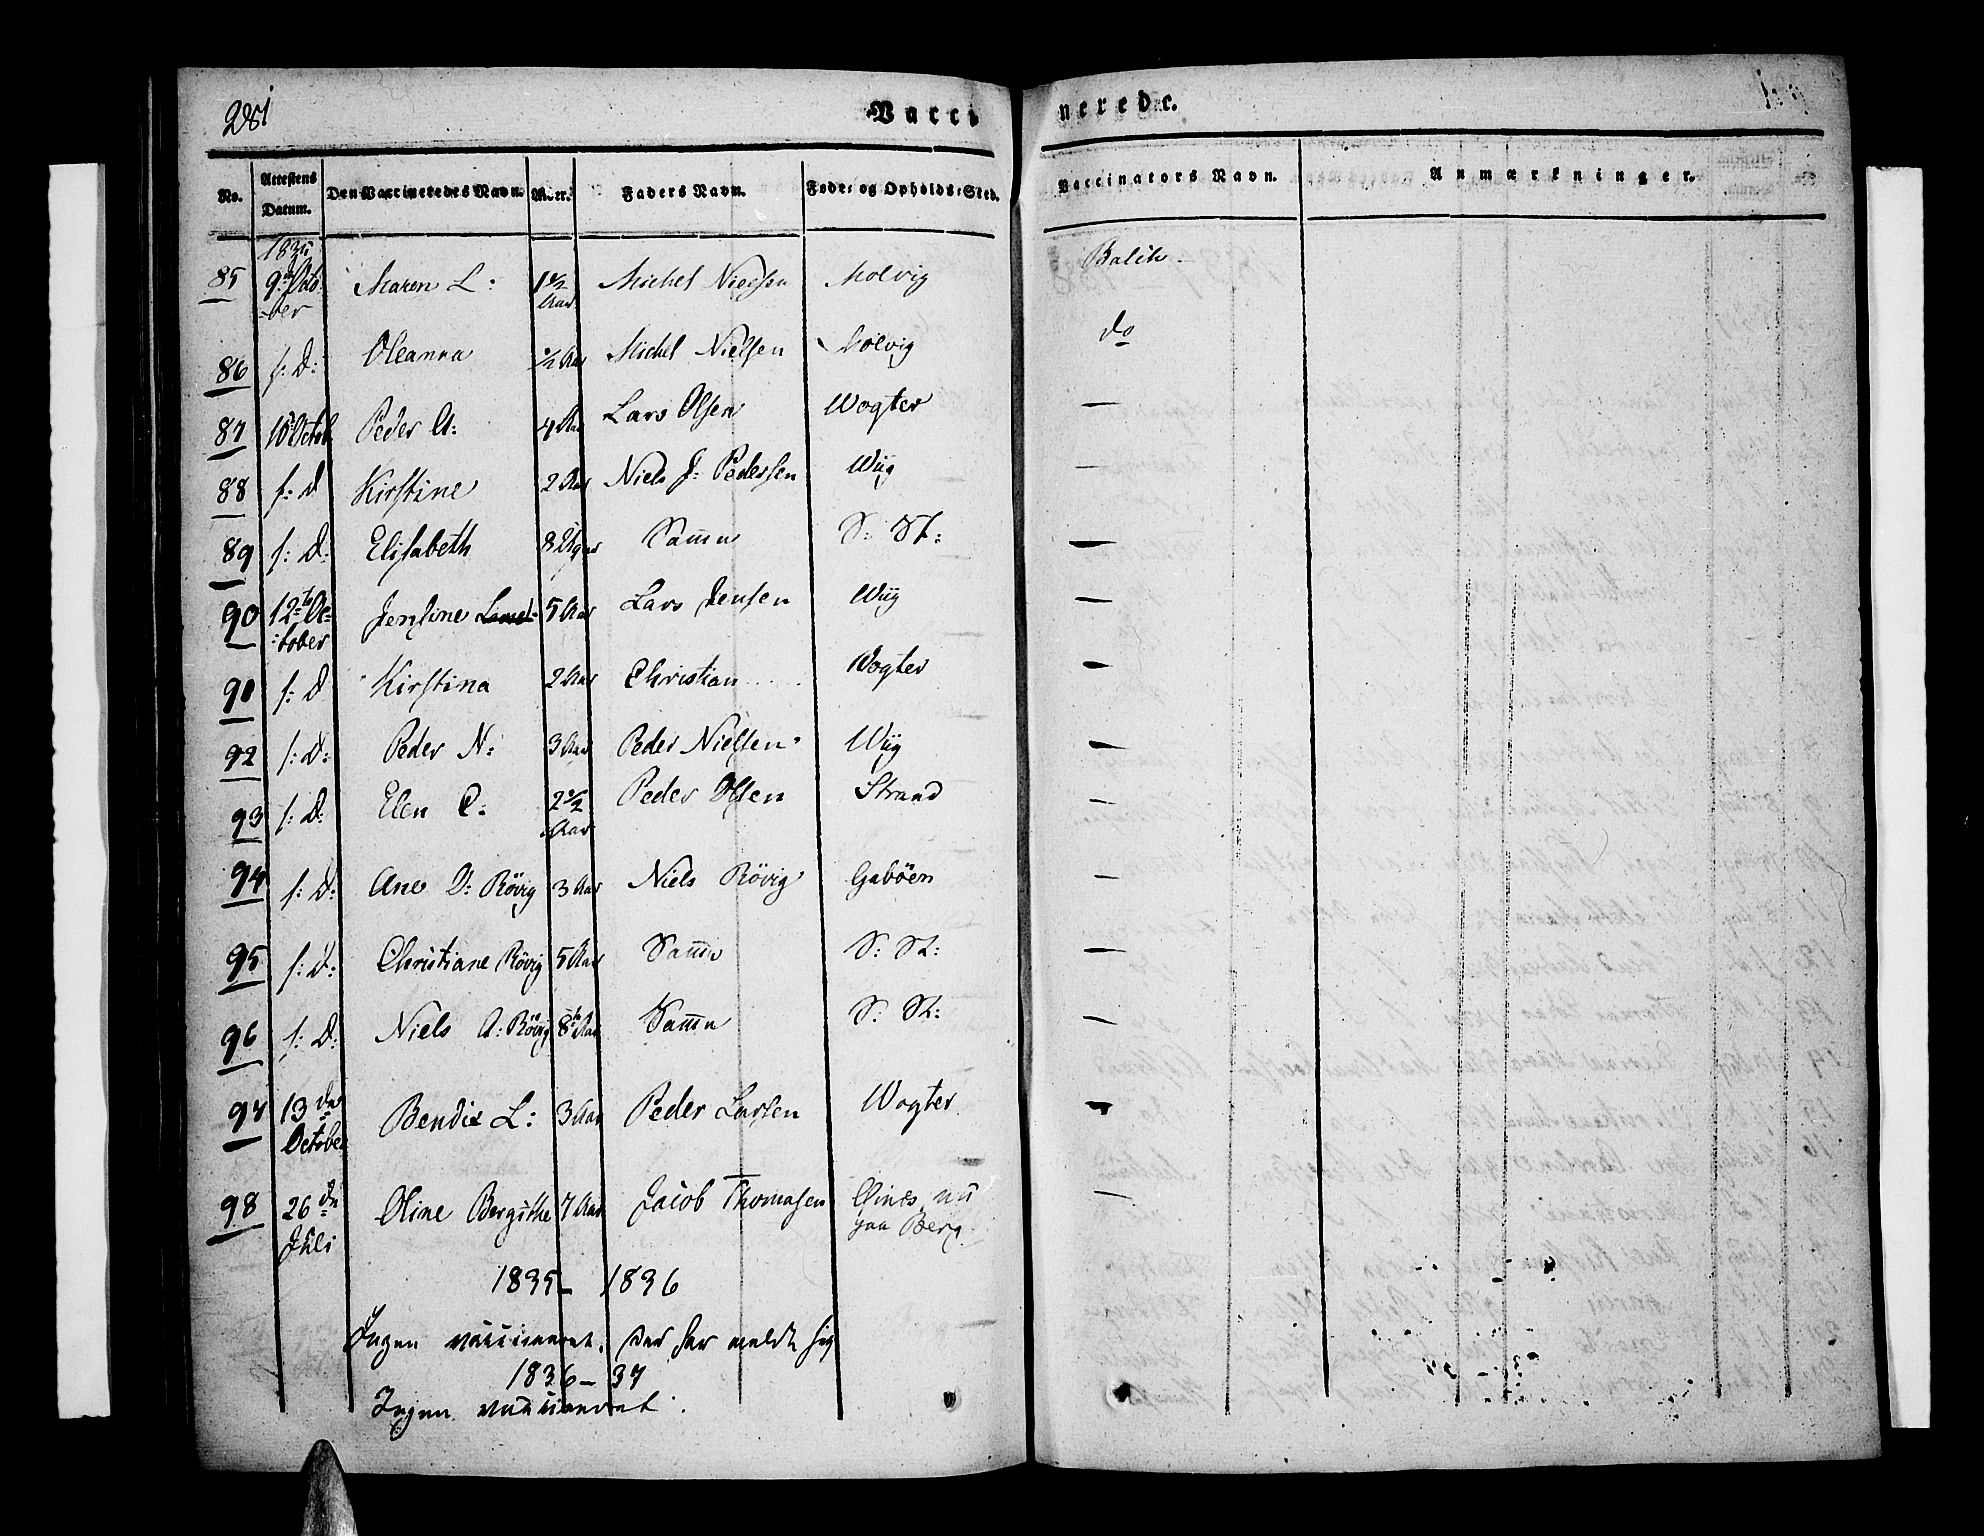 281
Vaccinerede.
No.
Attestens Datum.
Den Vaccineredes Navn.
Alder.
Faders Navn.
Føde- og Opholds-Sted.
Vaccinators Navn.
Anmærkninger.
1835
85 9de Octo-ber Maren L: 1 1/2 Aar Michel Nielsen Molvig Balch.
86 s: D: Oleanna 1/2 Aar Michel Nielsen Molvig do
87 10de Octob Peder A: 4 Aar Lars Olsen Wogter —
88 s: D Kirstine 2 Aar Niels J: Pedersen Wiig —
89 s: D: Elisabeth 8 Uger Samme S: St: —
90 12te Oc-tober Jensine 5 Aar Lars Jensen Wiig —
91 s: D Kirstina 2 Aar Christian Wogter —
92 s: D: Peder N: 3 Aar Peder Nielsen Wiig —
93 s: D: Elen C: 2 1/2 Aar Peder Olsen Strand —
94 s: D: Ane D: Rövig 3 Aar Niels Rövig Gaböen —
95 s: D: Christiane Rövig 5 Aar Samme S: St: —
96 s: D: Niels A: Rövig 8 Aar Samme S: St: —
97 13de October Bendix L: 3 Aar Peder Larsen Wogter —
98 26de Juli Oline Bergithe 7 Aar Jacob Thomasen nu paa Berg. —
1835 – 1836
Ingen vaccineret, der har meldt sig
1836 – 37
Ingen vaccineret.